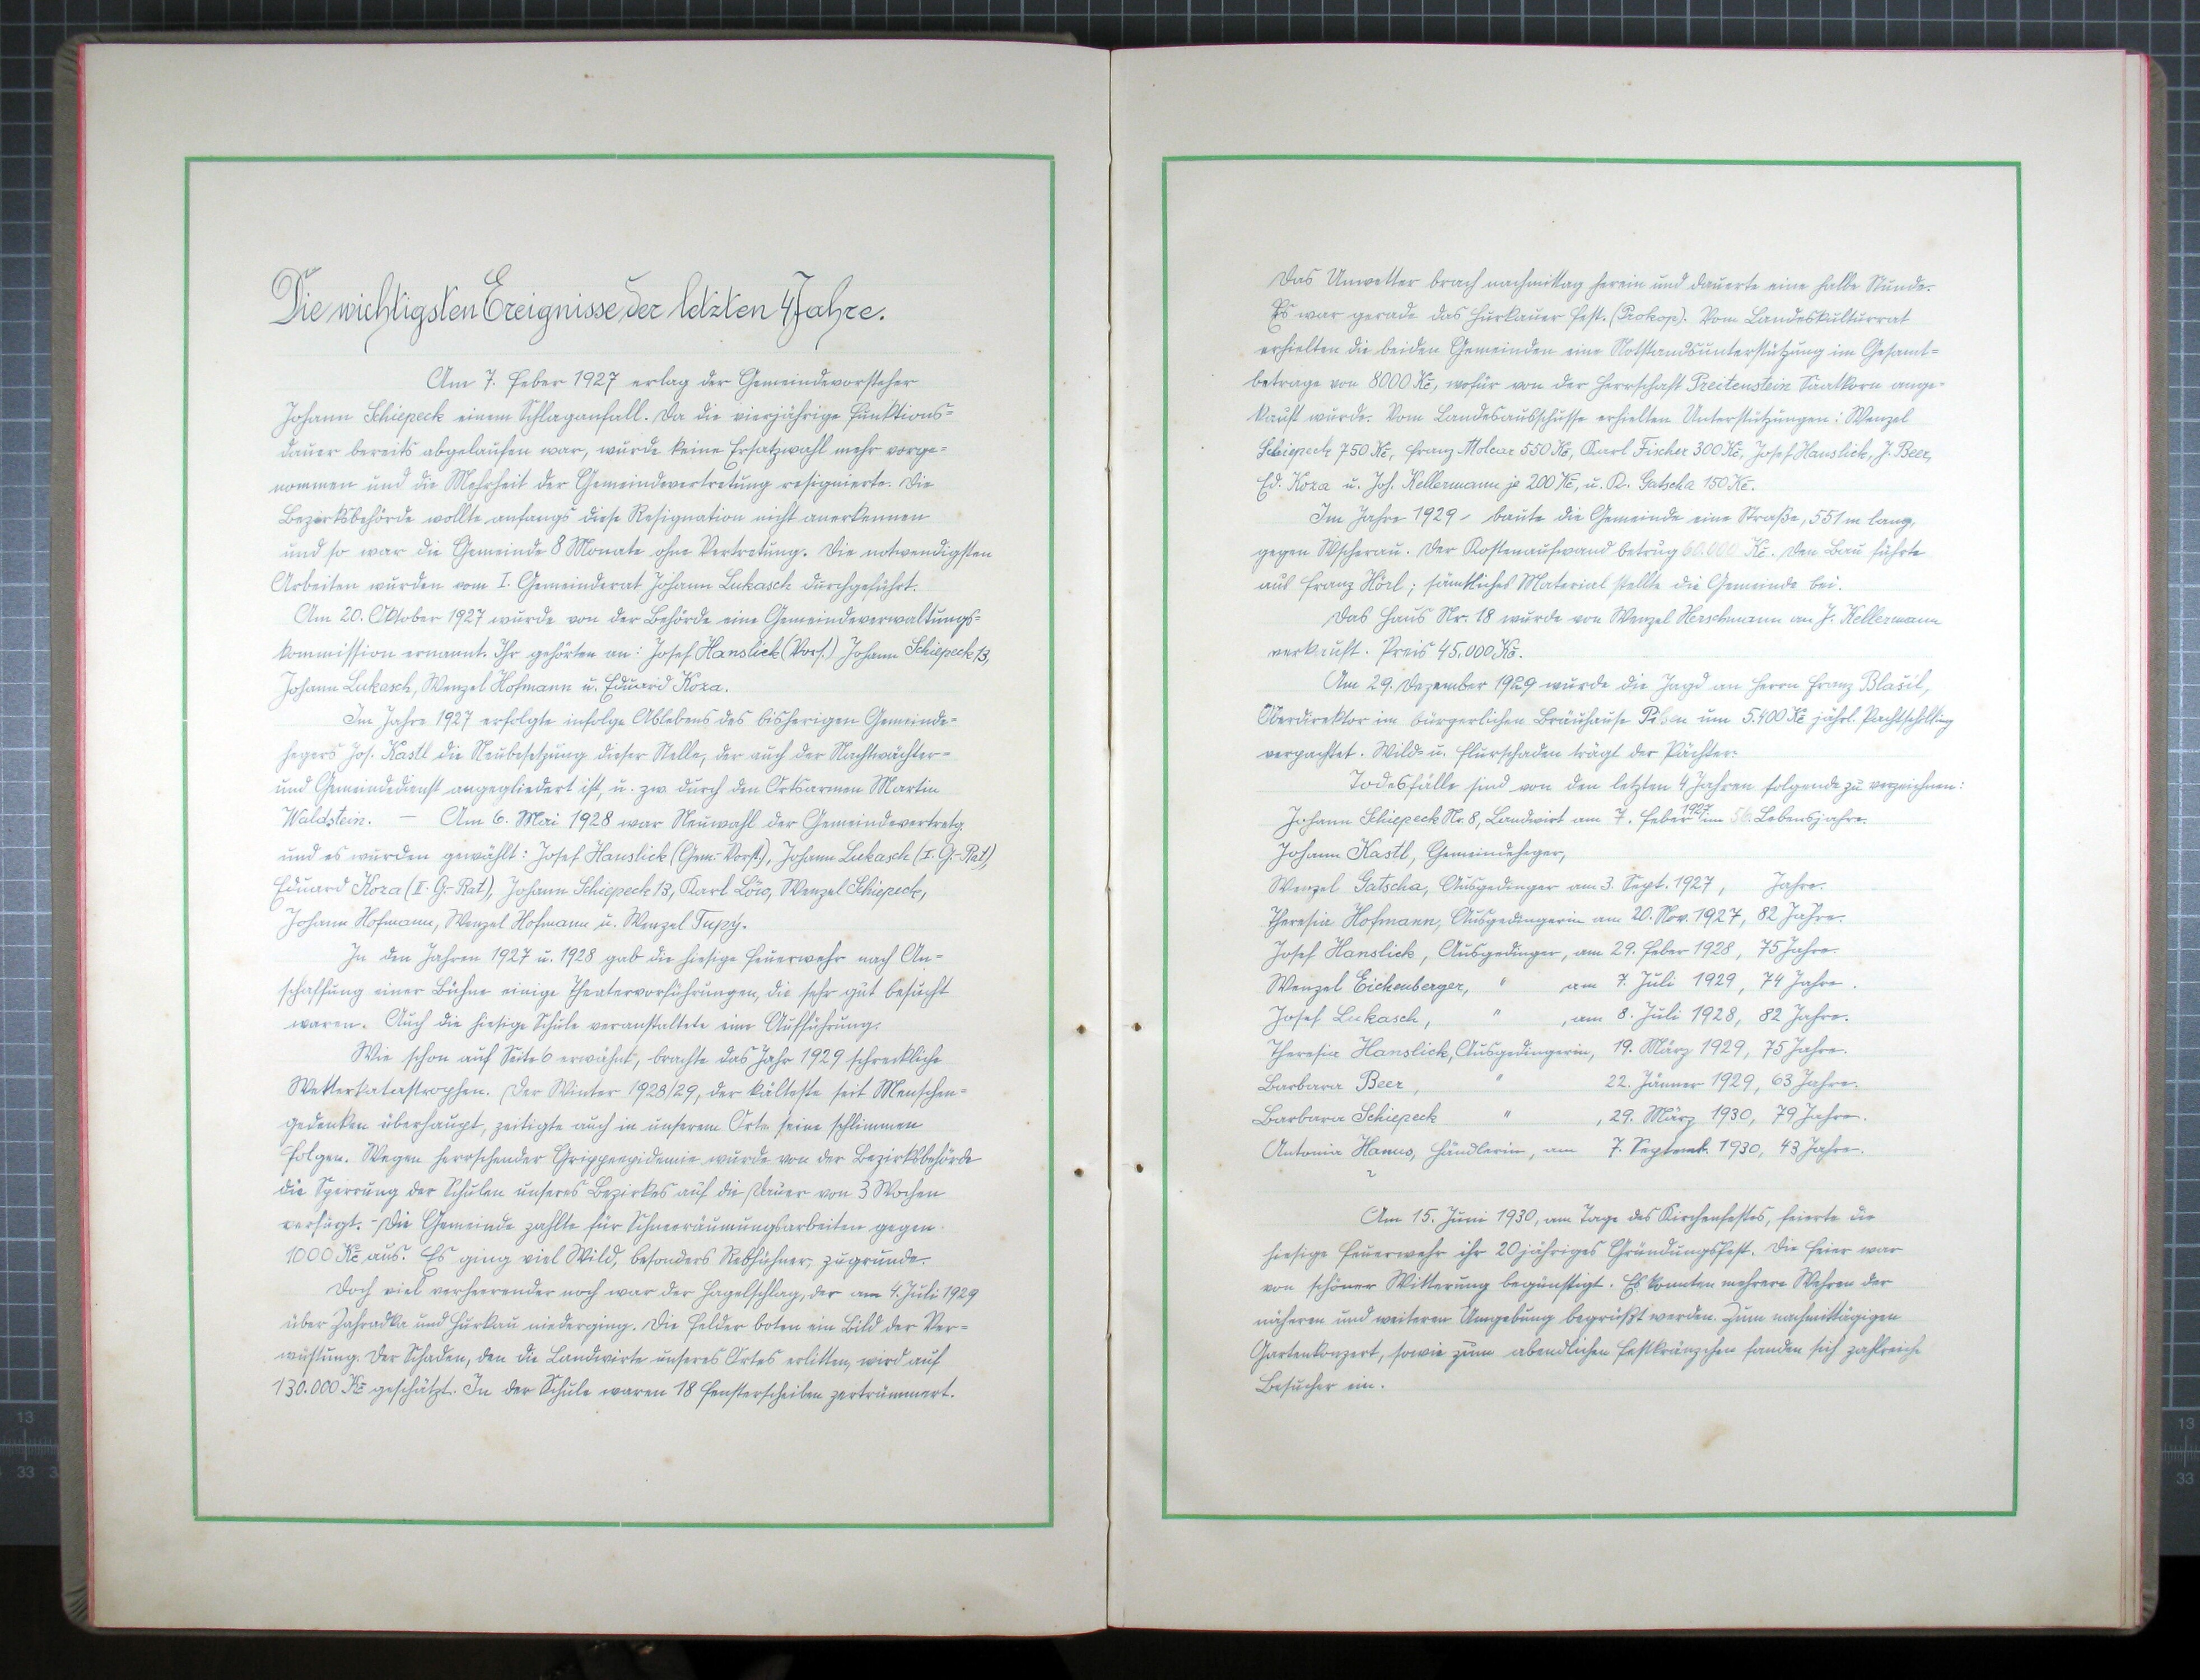 Die wichtigsten Ereignisse der letzten 4 Jahre.
Am 7. Feber 1927 erlag der Gemeindevorsteher
Johann Schiepeck einem Schlaganfall. Da die vierjährige Funktions=
dauer bereits abgelaufen war, wurde keine Ersatzwahl mehr vorge=
nommen und die Mehrheit der Gemeindevertretung resignierte. Die
Bezirksbehörde wollte anfangs diese Resignation nicht anerkennen
und so war die Gemeinde 8 Monate ohne Vertretung. Die notwendigsten
Arbeiten wurden vom I. Gemeinderat Johann Lukasch durchgeführt.
Am 20. Oktober 1927 wurde von der Behörde eine Gemeindeverwaltungs=
kommission ernannt. Ihr gehörten an: Josef Hanslick (Vors.) Johann Schiepeck 13,
Johann Lukasch, Wenzel Hofmann u. Eduard Koza.
Im Jahre 1927 erfolgte infolge Ablebens des bisherigen Gemeinde=
hegers Jos. Kastl die Neubesetzung dieser Stelle, der auch der Nachtwächter=
und Gemeindedienst angegliedert ist, u. zw. durch den Ortsarmen Martin
Waldstein. — Am 6. Mai 1928 war Neuwahl der Gemeindevertretg.
und es wurden gewählt: Josef Hanslick (Gem.-Vorst.), Johann Lukasch (I. G.-Rat),
Eduard Koza (II. G.-Rat), Johann Schiepeck 13, Karl Löw, Wenzel Schiepeck,
Johann Hofmann, Wenzel Hofmann u. Wenzel Tupy.
In den Jahren 1927 u. 1928 gab die hiesige Feuerwehr nach An=
schaffung einer Bühne einige Theatervorführungen, die sehr gut besucht
waren. Auch die hiesige Schule veranstaltete eine Aufführung.
Wie schon auf Seite 6 erwähnt, brachte das Jahr 1929 schreckliche
Wetterkatastrophen. Der Winter 1928/29, der kälteste seit Menschen=
gedenken überhaupt, zeitigte auch in unserem Orte seine schlimmen
Folgen. Wegen herrschender Grippeepidemie wurde von der Bezirksbehörde
die Sperrung der Schulen unseres Bezirkes auf die Dauer von 3 Wochen
verfügt. - Die Gemeinde zahlte für Schneeräumungsarbeiten gegen
1000 Kč aus. Es ging viel Wild, besonders Rebhühner, zugrunde.
Doch viel verheerender noch war der Hagelschlag, der am 4. Juli 1929
über Zahradka und Hurkau niederging. Die Felder boten ein Bild der Ver=
wüstung. Der Schaden, den die Landwirte unseres Ortes erlitten, wird auf
130.000 Kč geschätzt. In der Schule waren 18 Fensterscheiben zertrümmert.
Das Unwetter brach nachmittag herein und dauerte eine halbe Stunde.
Es war gerade das Hurkauer Fest. (Prokop). Vom Landeskulturrat
erhielten die beiden Gemeinden eine Notstandsunterstützung im Gesamt=
betrage von 8000 Kč, wofür von der Herrschaft Preitenstein Saatkorn ange=
kauft wurde. Vom Landesausschusse erhielten Unterstützungen: Wenzel
Schiepeck 750 Kč, Franz Molcar 550 Kč, Karl Fischer 300 Kč, Josef Hanslick, J. Beer,
Ed. Koza u. Joh. Kellermann je 200 Kč, u. R. Gatscha 150 Kč.
Im Jahre 1929 - baute die Gemeinde eine Straße, 551 m lang,
gegen Wscherau. Der Kostenaufwand betrug 60.000 Kč. Den Bau führte
aus Franz Hörl; sämtliches Material stellte die Gemeinde bei.
Das Haus Nr. 18 wurde von Wenzel Herschmann an J. Kellermann
verkauft. Preis 45.000 Kč.
Am 29. Dezember 1929 wurde die Jagd an Herrn Franz Blasil,
Oberdirektor im bürgerlichen Bräuhause Pilsen um 5.400 Kč jährl. Pachtschilling
verpachtet. Wild- u. Flurschaden trägt der Pächter.
Todesfälle sind von den letzten 4 Jahren folgende zu verzeichnen:
Johann Schiepeck Nr. 8, Landwirt am 7. Feber 1927 im 56. Lebensjahre.
Johann Kastl, Gemeindeheger,
Wenzel Gatscha, Ausgedinger am 3. Sept. 1927, Jahre.
Theresia Hofmann, Ausgedingerin am 20. Nov. 1927, 82 Jahre.
Josef Hanslick, Ausgedinger, am 29. Feber 1928, 75 Jahre.
Wenzel Eichenberger, " am 7. Juli 1929, 74 Jahre.
Josef Lukasch, " , am 8. Juli 1928, 82 Jahre.
Theresia Hanslick, Ausgedingerin, 19. März 1929, 75 Jahre.
Barbara Beer, " 22. Jänner 1929, 63 Jahre.
Barbara Schiepeck " , 29. März 1930, 79 Jahre.
Antonia Hanus, Händlerin, am 7. Septemb. 1930, 43 Jahre.
Am 15. Juni 1930, am Tage des Kirchenfestes, feierte die
hiesige Feuerwehr ihr 20jähriges Gründungsfest. Die Feier war
von schöner Witterung begünstigt. Es konnten mehrere Wehren der
näheren und weiteren Umgebung begrüßt werden. Zum nachmittägigen
Gartenkonzert, sowie zum abendlichen Festkränzchen fanden sich zahlreiche
Besucher ein.
13
33
13
33